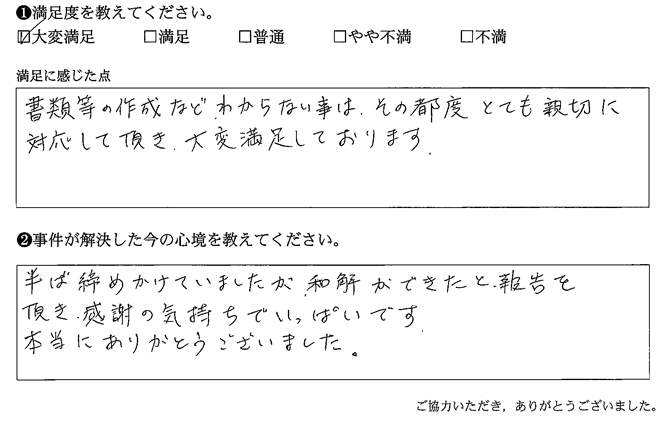 ❶満足度を教えてください。
☑大変満足 □満足 □普通 □やや不満 □不満
満足に感じた点
書類等の作成など、わからない事は、その都度とても親切に
対応して頂き、大変満足しております。
❷事件が解決した今の心境を教えてください。
半ば締めかけていましたが、和解ができたと、報告を
頂き、感謝の気持ちでいっぱいです
本当にありがとうございました。
ご協力いただき，ありがとうございました。